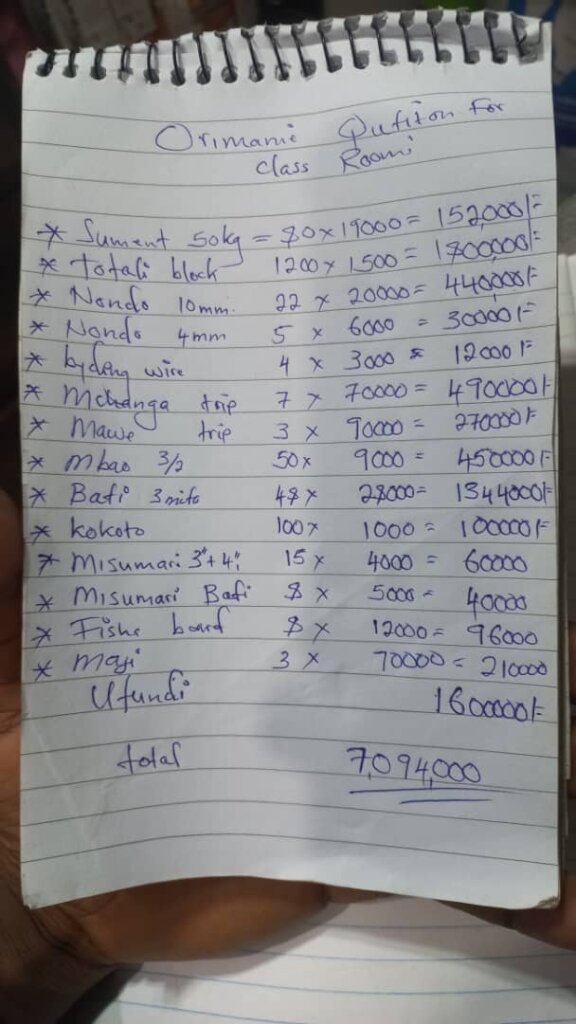 Orimanie Qufiton For
Class Roomi
* Sument 50kg = 80 x 19000 = 152,000/=
* totali block 1200 x 1500 = 1800,000/=
* Nondo 10mm. 22 x 20000 = 440,000/=
* Nondo 4mm 5 x 6000 = 30000/=
* bydeng wire 4 x 3000 = 12000/=
* Mchanga trip 7 x 70000 = 490000/=
* Mawe trip 3 x 90000 = 270000/=
* Mbao 3/2 50x 9000 = 450000/=
* Bati 3 mita 48x 28000= 1344000/=
* Kokoto 100x 1000 = 100000/=
* Misumari 3"+4" 15 x 4000 = 60000
* Misumari Bati 8 x 5000 = 40000
* Fishe board 8 x 12000= 96000
* Maji 3 x 70000 = 210000
Ufundi 1600000/=
total 7,094,000